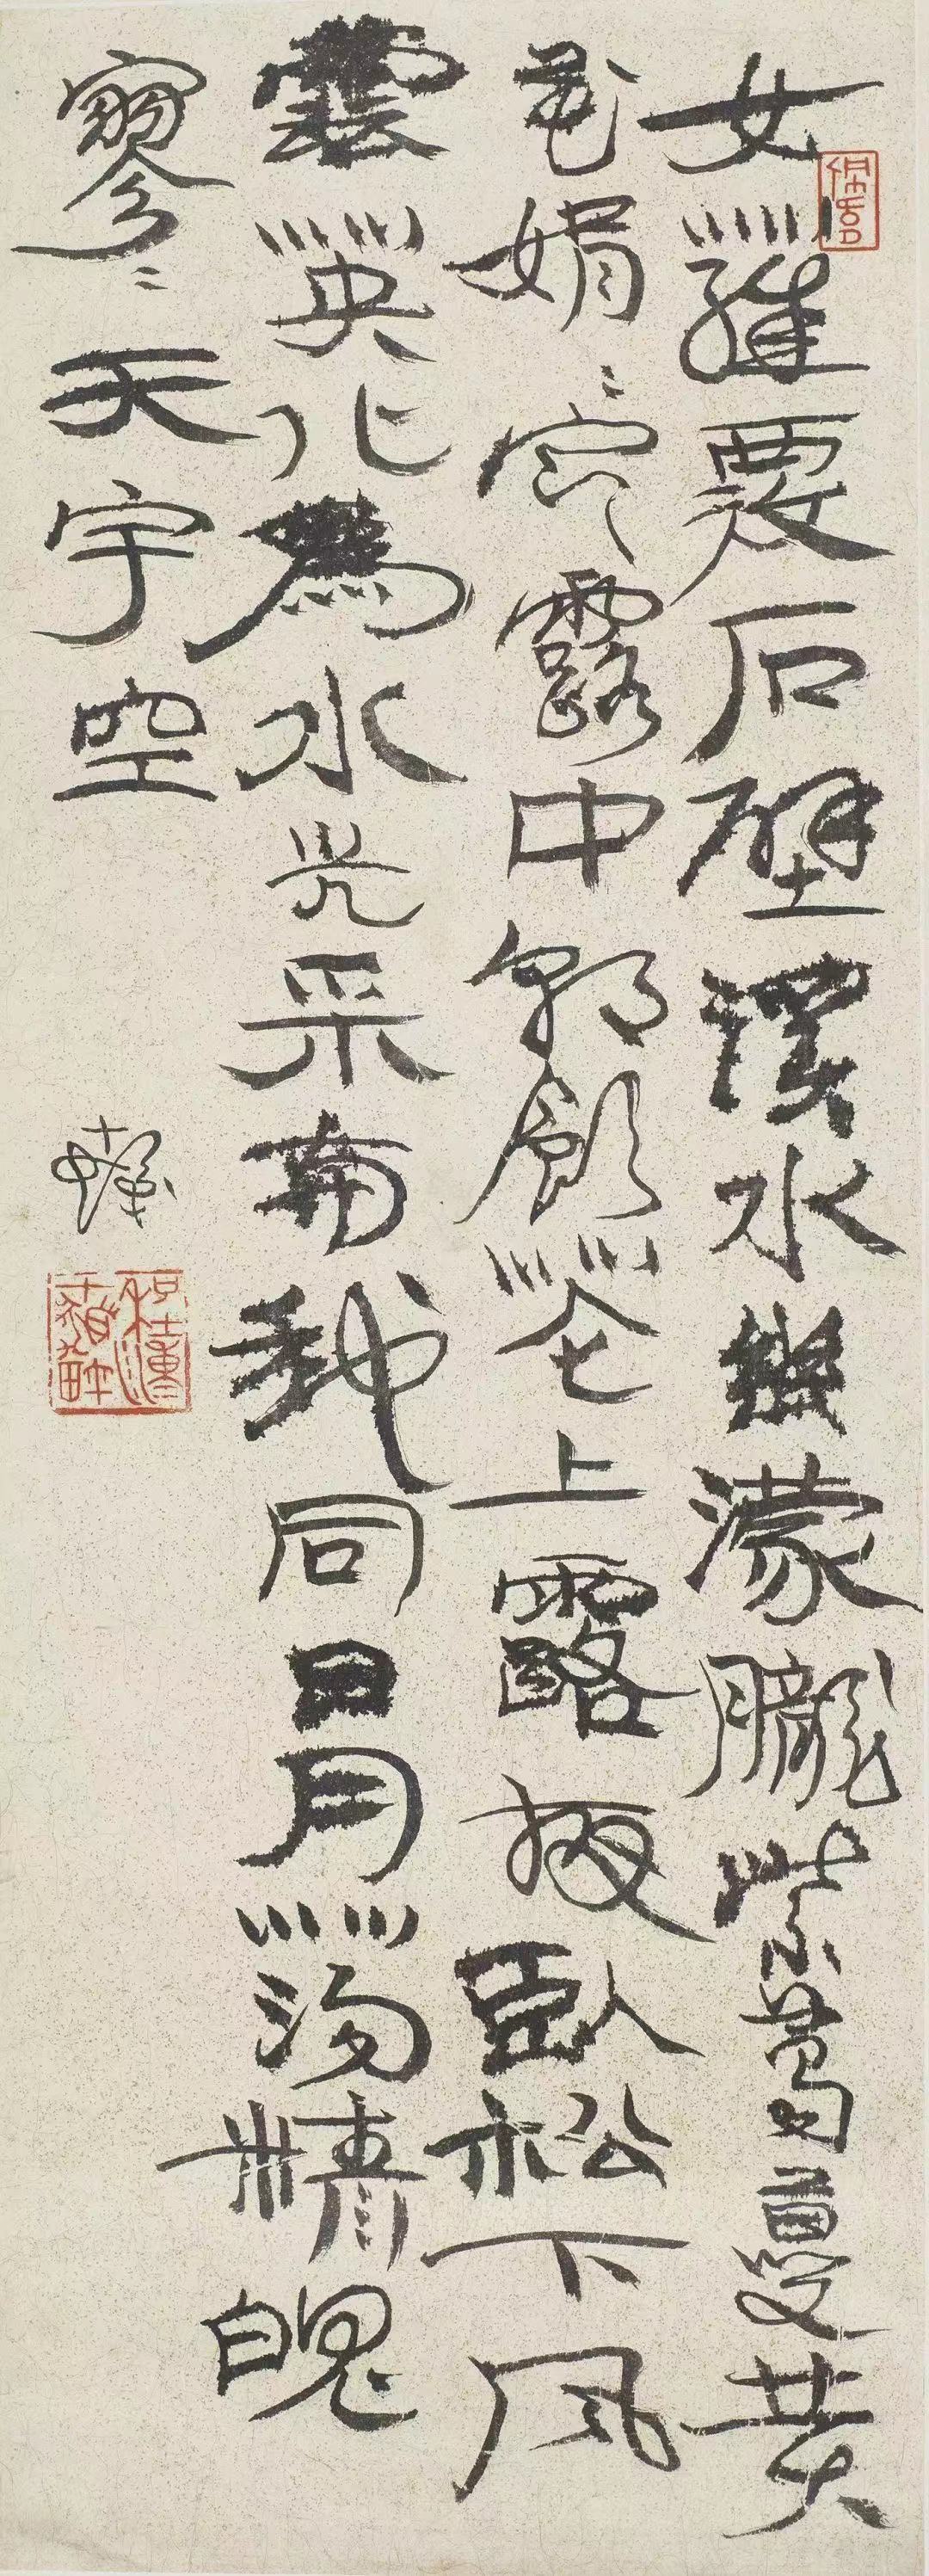 女蘿覆石壁溪水幽濛朧紫葛蔓黃
花娟〻寒露中朝飲花上露夜臥松下風
雲英化為水光采與我同日月蕩精魄
寥〻天宇空